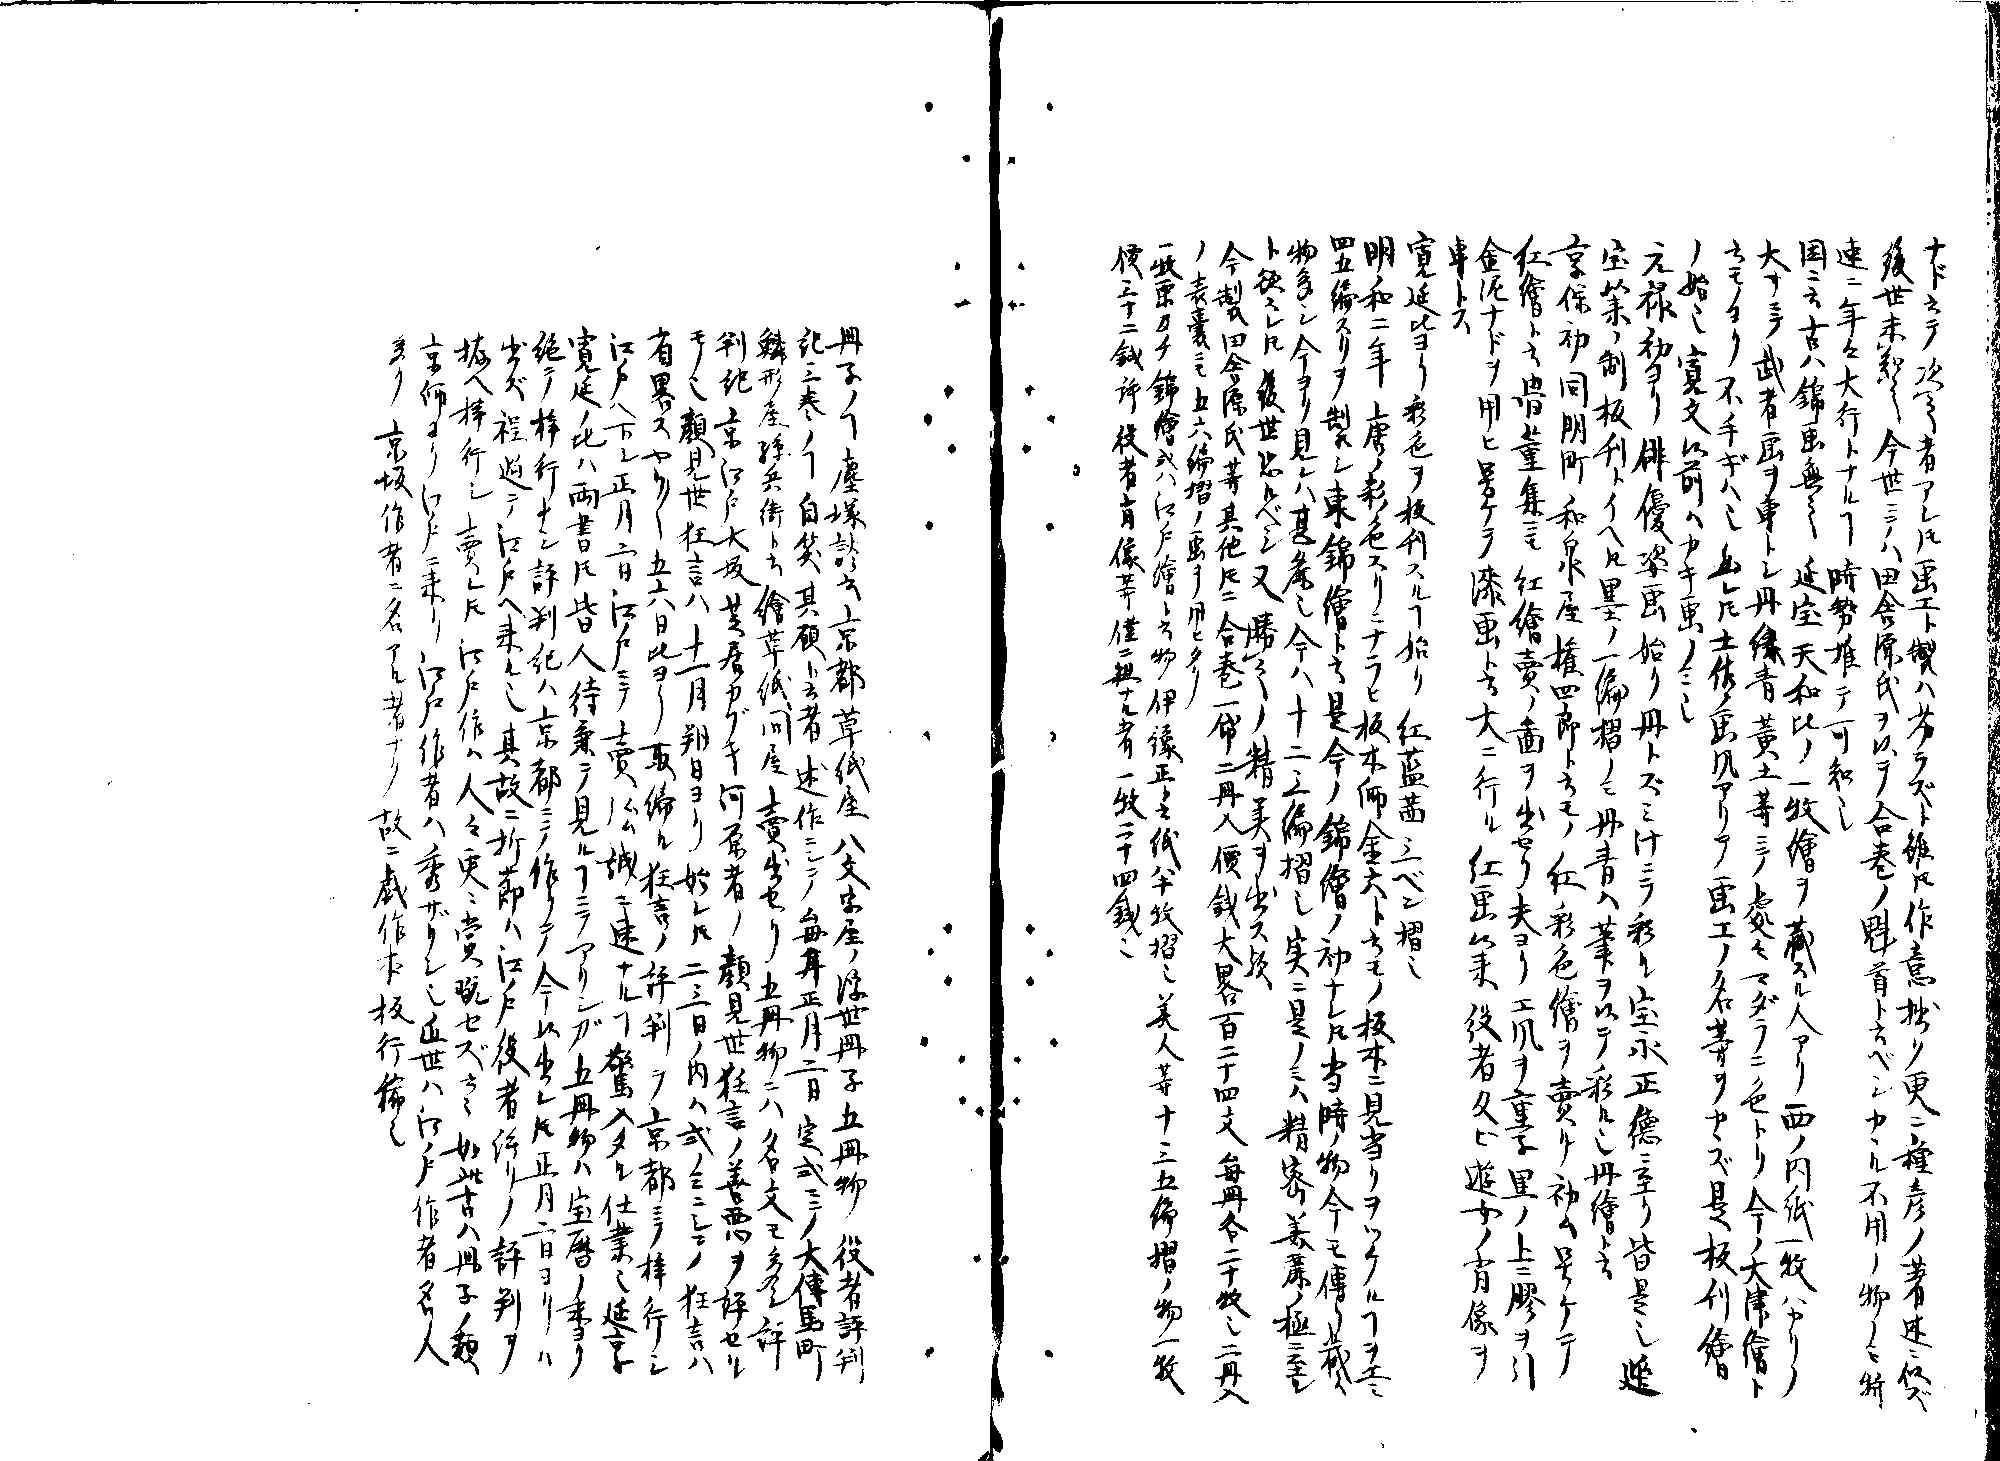 ナド云テ次々ノ者アレ𪜈画工ト製ハ劣ラズト雖𪜈作意拙ク更ニ種彦ノ著述ニ似ズ
後世未知ㇾ之今世ニテハ田舎源氏ヲ以テ合巻ノ魁首ト云ベシカヽル不用ノ物ノミ
速ニ年々大行トナルヿ時勢推テ可知也
因ニ云古ハ錦画無之延宝天和比ノ一枚繪ヲ蔵スル人アリ西ノ内紙一枚バカリノ
大サニテ武者画ヲ専トシ丹緑青黄土等ニテ処々マダラニ色トリ今ノ大津繪ト
云モヨリ不手ギハ也然レ𪜈土佐ノ画風アリテ画工ノ名等ヲカヽズ是板刊繪
ノ始也寛文以前ハカキ画ノミ也
元禄初ヨリ俳優姿画始リ丹トズミ汁ニテ彩ル宝永正徳ニ至リ皆是也
宝策ノ制板刊トイヘ𪜈墨ノ一編摺ノミ丹青ハ筆ヲ以テ彩ル也丹繪ト云
享保初同朋町和泉屋権四郎ト云モノ紅彩色繪ヲ賣リ初ム号ケテ
紅繪ト云昔々董集ニモ紅繪賣ノ畫ヲ出セリ夫ヨリ工風ヲ重子墨ノ上ニ膠ヲ引
金泥ナドヲ用ヒ号ケテ漆画ト云大ニ行ル紅画以来役者及ビ遊女ノ肖像ヲ
専トス
寛延比ヨリ彩色ヲ板刊スルヿ始リ紅藍茜三ベン摺也
明和二年唐ノ彩色スリニナラヒ板木師金六ト云モノ板木ニ見当リヲツケルヿヲ工ミ
四五編スリヲ製シ東錦繪ト云是今ノ錦繪ノ初ナレ𪜈当時ノ物今モ傳ヘ蔵ス
物多シ今ヨリ見レバ甚麁也今ハ十二三編摺也実ニ是ノミハ精密美麗ノ極ニ至ル
ト欲スレ𪜈後世恐ルベシ又勝之ノ精美ヲ出ス歟
今製田舎源氏等其他𪜈ニ合巻一帋二冊入價銭大畧百二十四文毎冊各二十枚也二冊入
ノ表嚢ニモ五六編摺ノ画ヲ用ヒタリ
一枚画乃チ錦繪或ハ江戸繪ト云物伊豫正ト云紙八半枚摺也美人等十三五編摺ノ物一枚
價三十二銭許役者肖像等僅ニ粗ナル者一枚二十四銭也
冊子ノヿ塵塚談云京都草紙屋八文字屋ノ浮世冊子五冊物役者評判
記三巻ノヿ自笑其磧ト云者述作ニシテ毎年正月二日定式ニテ大傳馬町
鱗形屋孫兵衛ト云繪草紙問屋賣出セリ五冊物ニハ名文モ多シ評
判記京江戸大坂芝居カブキ河原者ノ顔見世狂言ノ善悪ヲ評セル
モノ也顔見世狂言ハ十一月朔日ヨリ始レ𪜈二三日ノ内ハ式ノミニシテ狂言ハ
省畧スヤウ〱五六日比ヨリ取締ル狂言ノ評判ヲ京都ニテ梓行シ
江戸ヘ下シ正月二日江戸ニテ賣弘ム誠ニ速ナルヿ驚入タル仕業也延享
寛延ノ比ハ両書𪜈皆人待兼テ見ルヿニテアリシガ五冊物ハ宝暦ノ末ヨリ
絶テ梓行ナシ評判記ハ京都ニテ作リテ今以出レ𪜈正月二日ヨリハ
出ズ程過テ江戸ヘ来ル也其故ニ折節ハ江戸役者許リノ評判ヲ
拵ヘ梓行シ賣レ𪜈江戸作ハ人々更ニ賞翫セズ云々如此昔ハ冊子ノ類
京師ヨリ江戸ニ来リ江戸作者ハ秀ザリシ也近世ハ江戸作者名人
多ク京坂作者ニ名アル者ナク故ニ戯作本板行稀也